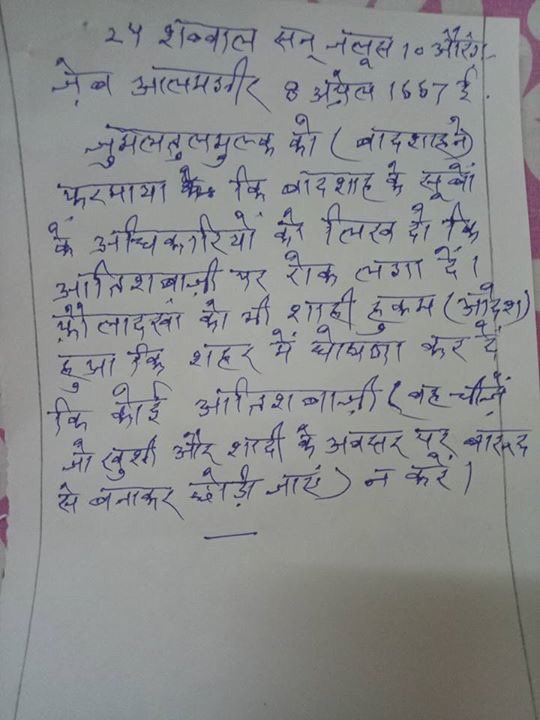 24 शव्वाल सन् जलूस 10 औरंग-
ज़ेब आलमगीर 8 अप्रैल 1667 ई.
जुमलतुलमुल्क को (बादशाह ने)
फरमाया कि बादशाह के सूबों
के अधिकारियों को लिख दो कि
आतिशबाज़ी पर रोक लगा दें।
फ़ौलादखां को भी शाही हुकम (आदेश)
हुआ कि शहर में घोषणा कर दें
कि कोई आतिशबाज़ी (वह चीज़ें
जो खुशी और शादी के अवसर पर बारूद
से बनाकर छोड़ी जाएं) न करे।